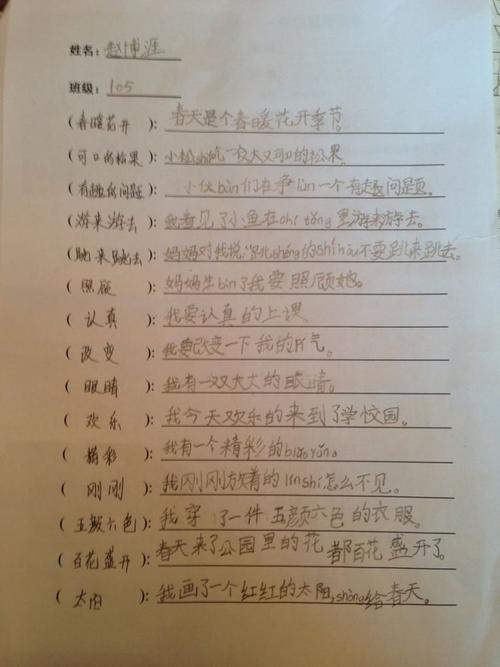 姓名：赵博涯
班级：105
(春暖花开)：春天是个春暖花开季节。
(可口的松果)：小松shǔ吃一女大又可口的松果。
(有趣的问题)：小伙bàn们在争lùn一个有趣问题。
(游来游去)：我看见了小鱼在chí táng里游来游去。
(跳来跳去)：妈妈对我说：跳shéng的shí 不要跳来跳去。
(照顾)：妈妈生bìn了我要照顾她。
(认真)：我要认真的上课
(改变)：我要改变一下我的片气。
(眼睛)：我有一双大大的眼睛。
(欢乐)：我今天欢乐的来到了学校园。
(精彩)：我有一个精彩的biǎo yǎn。
(刚刚)：我刚刚放着的línshí怎么不见。
(五颜六色)：我穿了一件五颜六色的衣服。
(百花盛开)：春天来了公园里的花都百花盛开了。
(太阳)：我画了一个红红的太阳,shòng给春天。